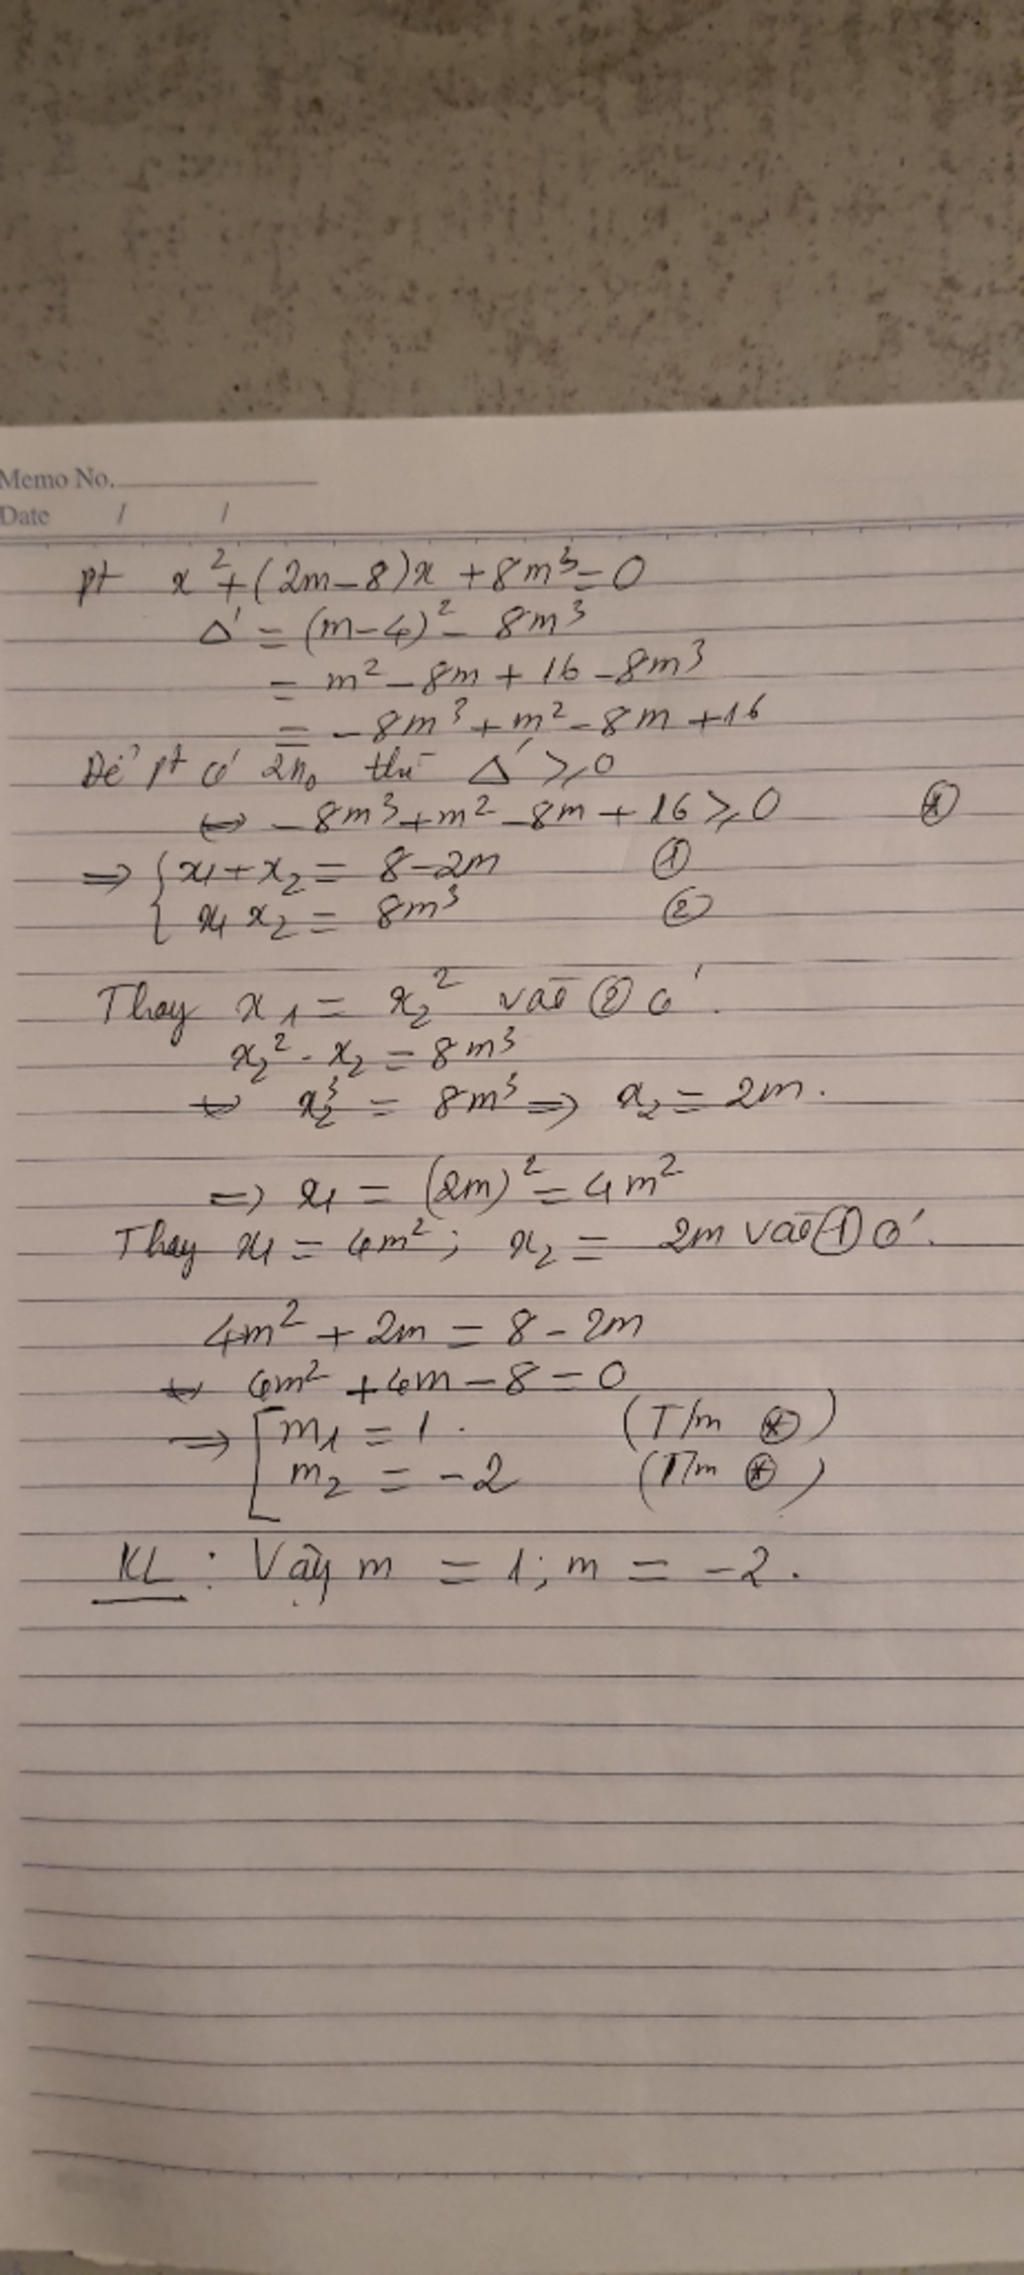 Memo No.
Date / /
pt x²+(2m-8)x +8m³=0
Δ' = (m-4)² - 8m³
= m² - 8m + 16 - 8m³
= -8m³ + m² - 8m + 16
Để pt có 2n₀ thì Δ' ≥ 0
⇔ -8m³ + m² - 8m + 16 ≥ 0 ⊛
⇒ { x₁ + x₂ = 8-2m ①
x₁ x₂ = 8m³ ②
Thay x₁ = x₂² vào ② có.
x₂² · x₂ = 8m³
⇔ x₂³ = 8m³ ⇒ x₂ = 2m.
⇒ x₁ = (2m)² = 4m²
Thay x₁ = 4m²; x₂ = 2m vào ① có.
4m² + 2m = 8 - 2m
⇔ 4m² + 4m - 8 = 0
⇒ [ m₁ = 1. (T/m ⊛)
m₂ = -2 (T/m ⊛)
KL : Vậy m = 1; m = -2.